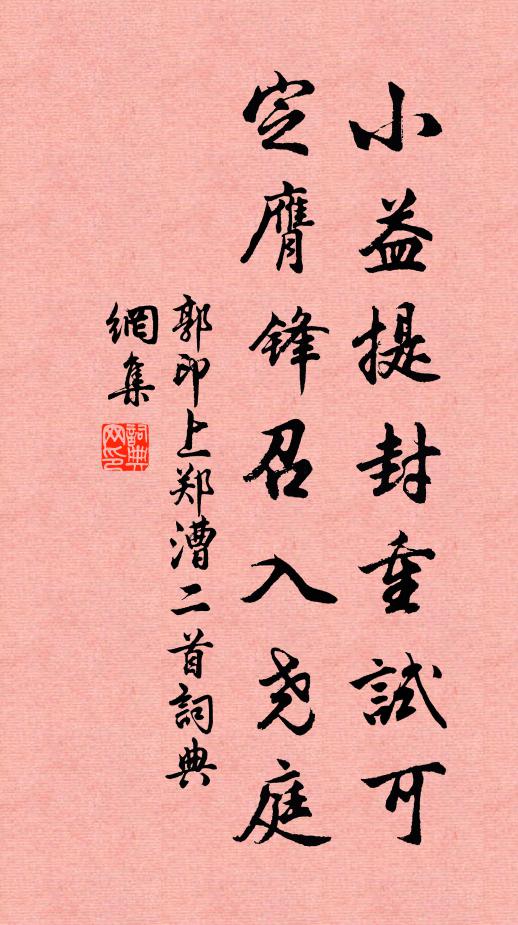 小益提封重試可
定膺锋召入尧庭
郭印上郑漕二首詞典
網集
詞典
网印